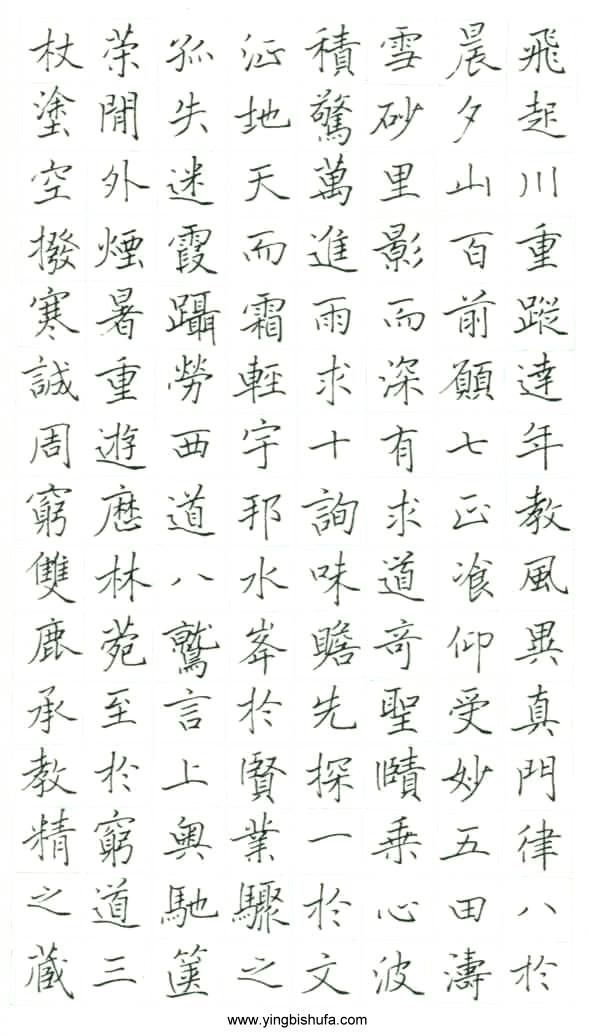 杖策孤征積雪晨飛
塗閒失地驚砂夕起
空外迷天萬里山川
撥煙霞而進影百重
寒暑躡霜雨而前蹤
誠重勞輕求深願達
周遊西宇十有七年
窮歷道邦詢求正教
雙林八水味道飡風
鹿菀鷲峯瞻奇仰異
承至言於先聖受真
教於上賢探賾妙門
精窮奧業一乘五律
之道馳驟於心田八
藏三篋之文波濤於
www.yingbishufa.com